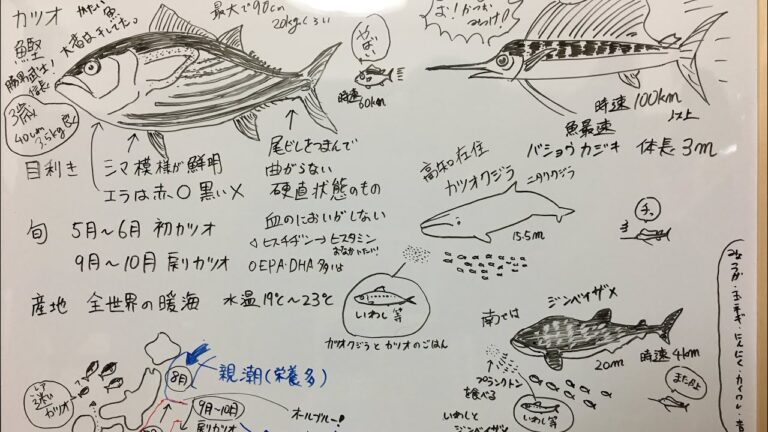 カツオ
鰹
かたい魚
大昔は干してた。
勝男武士!
信長!
3歳
40cm
3.5kg
最大で90cm
20kgくらい
時速
60km
よ!かつお
時速100km
以上
魚最速
バショウカジキ 体長3m
目利き
シマ模様が鮮明
エラは赤○黒い×
尾ビレをつまんで
曲がらない
硬直状態のもの
血のにおいがしない
旬 5月〜6月 初カツオ
9月〜10月 戻りカツオ
ヒスチヂン→ヒスタミン
おなかいたい
○EPA・DHA多い
産地 全世界の暖海 水温19℃〜23℃
高知在住
カツオクジラ
ニタリクジラ
15.5m
チッ
いわし等
カツオクジラとカツオのごはん
南では
ジンベイザメ
20m
時速4km
プランクトン
を食べる
いわしと
ジンベイザメ
みょうが・玉ネギ・にんにく・カイワレ・
迷い
カツオ
8月
親潮(栄養多)
9月〜10月
戻りカツオ
オールブルー!